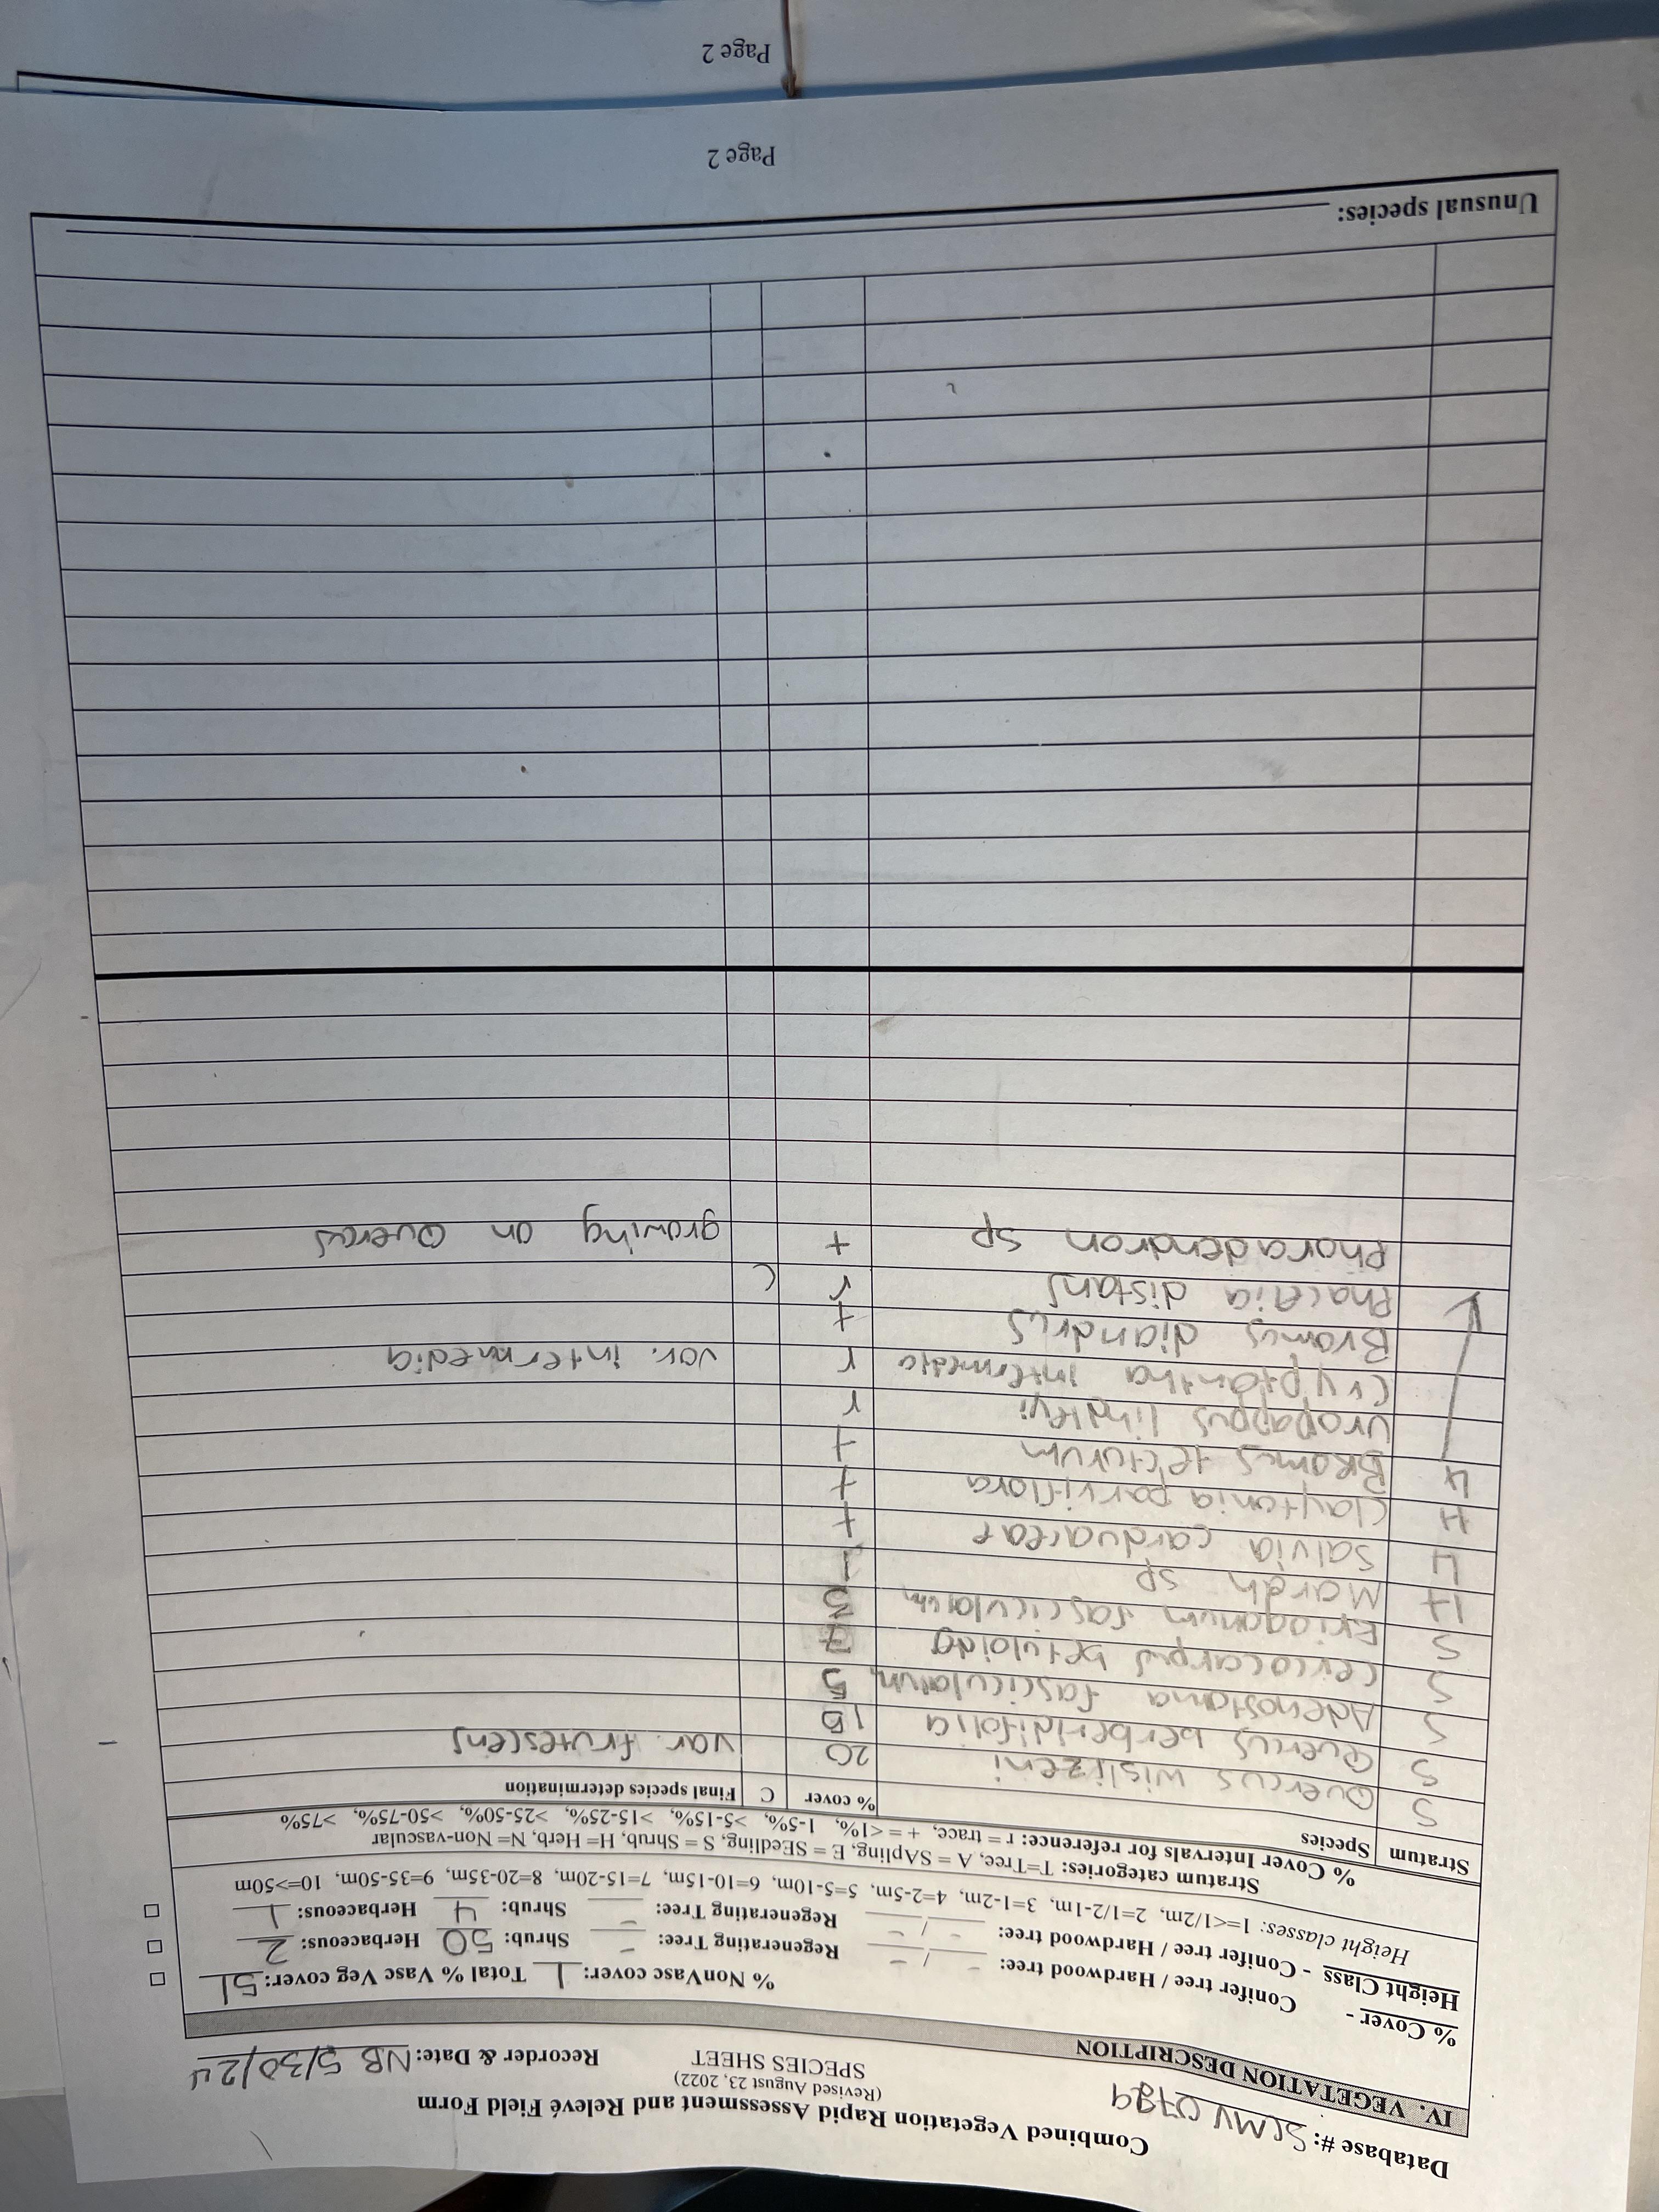 Combined Vegetation Rapid Assessment and Relevé Field Form
(Revised August 23, 2022)
SPECIES SHEET
Database #: SCMV 0789 Recorder & Date: NB 5/30/24
IV. VEGETATION DESCRIPTION
% NonVasc cover: 1 Total % Vasc Veg cover: 51
% Cover - Conifer tree / Hardwood tree: - / - Regenerating Tree: - Shrub: 50 Herbaceous: 2
Height Class - Conifer tree / Hardwood tree: - / - Regenerating Tree: - Shrub: 4 Herbaceous: 1
Height classes: 1=<1/2m, 2=1/2-1m, 3=1-2m, 4=2-5m, 5=5-10m, 6=10-15m, 7=15-20m, 8=20-35m, 9=35-50m, 10=>50m
Stratum categories: T=Tree, A = SApling, E = SEedling, S = Shrub, H= Herb, N= Non-vascular
% Cover Intervals for reference: r = trace, + = <1%, 1-5%, >5-15%, >15-25%, >25-50%, >50-75%, >75%
Stratum Species % cover C Final species determination
S Quercus wislizeni 20 var. frutescens
S Quercus berberidifolia 15
S Adenostoma fasciculatum 5
S Cercocarpus betuloides 7
S Eriogonum fasciculatum 3
H Marah sp 1
H Salvia carduaceae +
H Claytonia parviflora +
H BRomus tectorum +
Uropappus lindleyi r
Cryptantha intermedia r var. intermedia
Bromus diandrus +
Phacelia distans r C
Phoradendron sp + growing on Quercus
Unusual species:
Page 2
Page 2